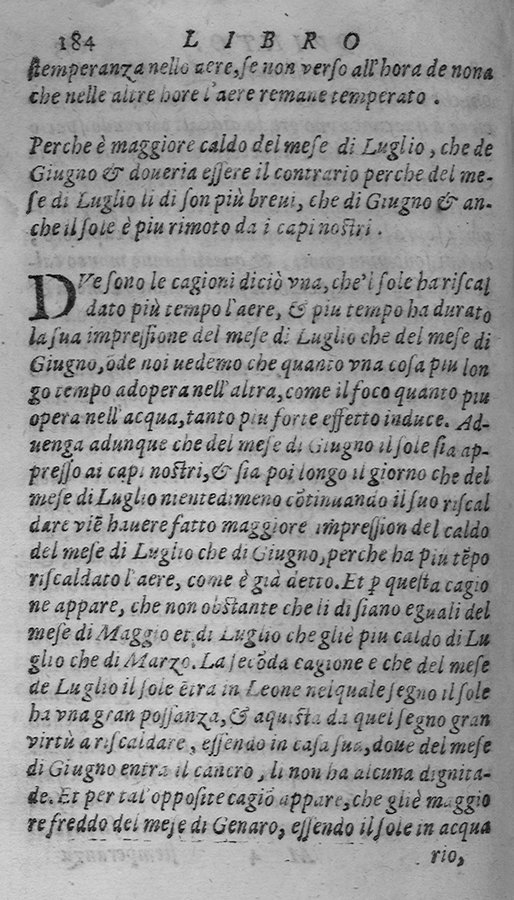 184 LIBRO
stemperanza nello aere, se non verso all'hora de nona
che nelle altre hore l'aere remane temperato.
Perche è maggiore caldo del mese di Luglio, che de
Giugno & doueria essere il contrario perche del me-
se di Luglio li di son più breui, che di Giugno & an-
che il sole è piu rimoto da i capi nostri.
DVe sono le cagioni diciò vna, che'l sole ha riscal
dato più tempo l'aere, & piu tempo ha durato
la sua impressione del mese di Luglio che del mese di
Giugno, õde noi uedemo che quanto vna cosa piu lon
go tempo adopera nell'altra, come il foco quanto piu
opera nell'acqua, tanto piu forte effetto induce. Ad-
uenga adunque che del mese di Giugno il sole sia ap-
presso ai capi nostri, & sia poi longo il giorno che del
mese di Luglio nientedimeno cõtinuando il suo riscal
dare viẽ hauere fatto maggiore impression del caldo
del mese di Luglio che di Giugno, perche ha piu tẽpo
riscaldato l'aere, come è già detto. Et p questa cagio
ne appare, che non obstante che li di siano eguali del
mese di Maggio et di Luglio che gliè piu caldo di Lu
glio che di Marzo. La secõda cagione e che del mese
de Luglio il sole ẽtra in Leone nel quale segno il sole
ha vna gran possanza, & aquista da quel segno gran
virtù a riscaldare, essendo in casa sua, doue del mese
di Giugno entra il cancro, li non ha alcuna dignita-
de. Et per tal'opposite cagiõ appare, che gliè maggio
re freddo del mese di Genaro, essendo il sole in acqua
rio,